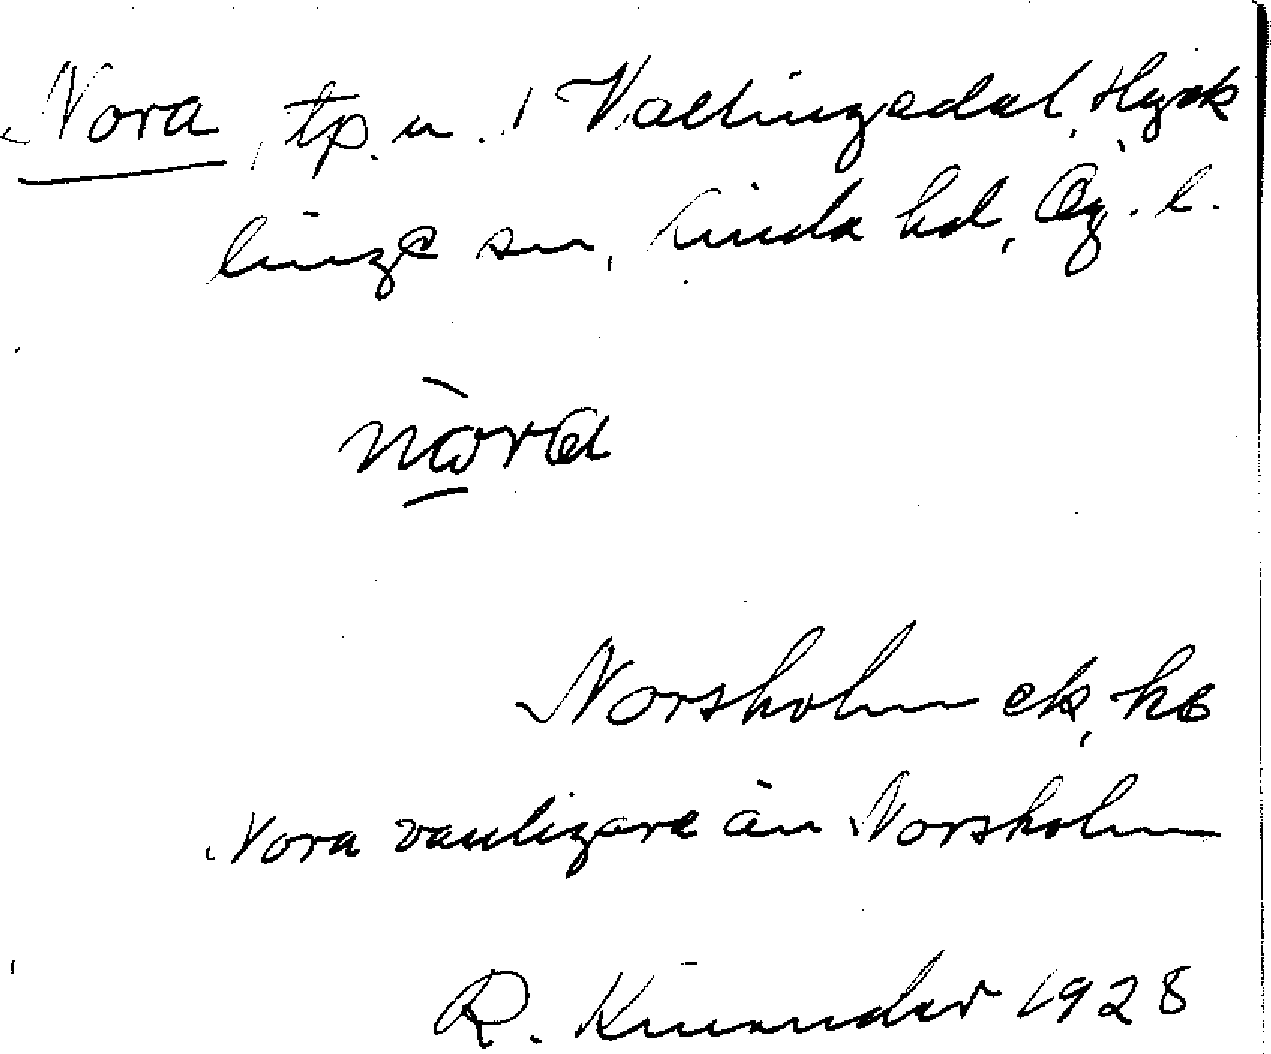 Nora, tp. u. i Vällingedal, Hyck
linge sn, Kinda hd, Ög. l.
nòra
Norsholm ek, ho
Nora vanligare än Norsholm
R. Kinander 1928